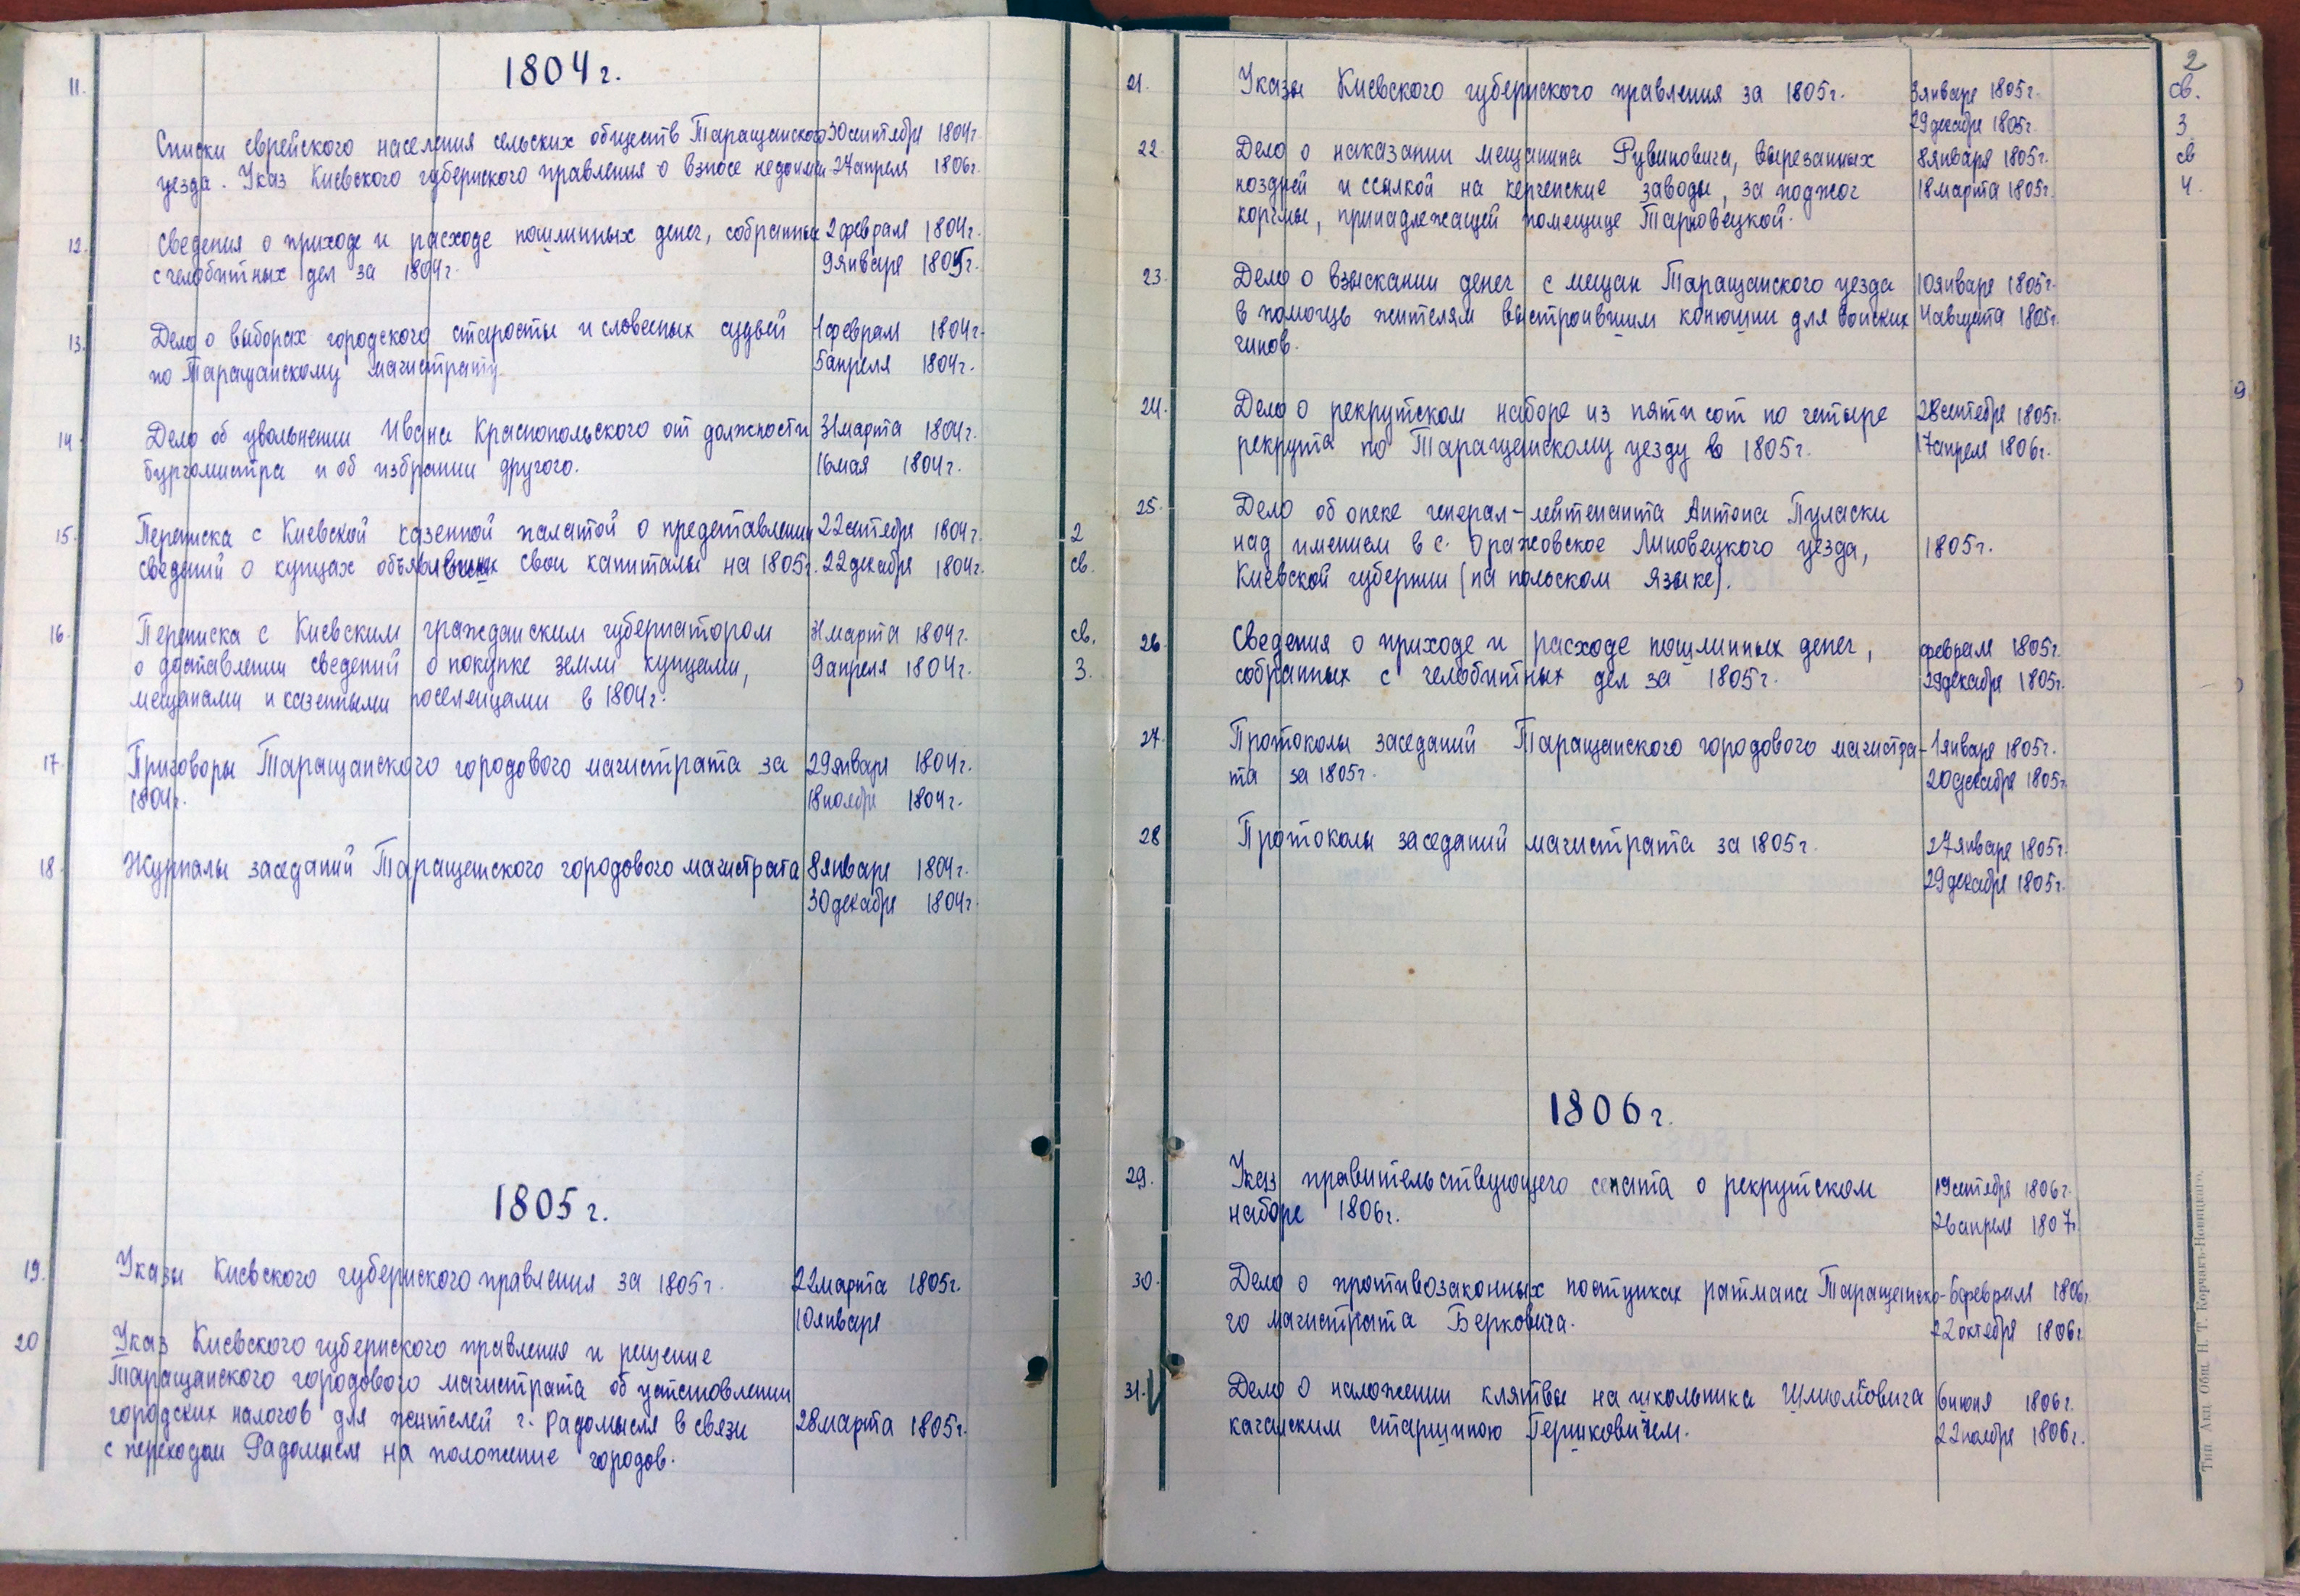 1804 г.
11.
Списки еврейского населения сельских обществ Таращанского 30 сентября 1804 г.
уезда. Указ Киевского губернского правления о взносе недоимки. 27 апреля 1806 г.
12. Сведения о приходе и расходе пошлинных денег, собранных 2 февраля 1804 г.
с челобитных дел за 1804 г. 9 января 1805 г.
13. Дело о выборах городского старосты и словесных судьей 4 февраля 1804 г.
по Таращанскому магистрату 5 апреля 1804 г.
14 Дело об увольнении Ивана Краснопольского от должности 31 марта 1804 г.
бургомистра и об избрании другого. 16 мая 1804 г.
15. Переписка с Киевской казенной палатой о представлении 22 сентября 1804 г. 2
сведений о купцах объявивших свои капиталы на 1805 г. 22 декабря 1804 г. св.
16. Переписка с Киевским гражданским губернатором 31 марта 1804 г. св.
о доставлении сведений о покупке земли купцами, 9 апреля 1804 г. 3.
мещанами и казенными поселенцами в 1804 г.
17. Приговоры Таращанского городового магистрата за 29 января 1804 г.
1804 г. 18 ноября 1804 г.
18. Журналы заседаний Таращанского городового магистрата 8 января 1804 г.
30 декабря 1804 г.
1805 г.
19. Указы Киевского губернского правления за 1805 г. 22 марта 1805 г.
10 января
20 Указ Киевского губернского правления и решение
Таращанского городового магистрата об установлении
городских налогов для жителей г. Радомысля в связи 28 марта 1805 г.
с переходом Радомысля на положение городов.
2
21. Указы Киевского губернского правления за 1805 г. 3 января 1805 г. св.
29 декабря 1805 г. 3
22 Дело о наказании мещанина Рувиновича, вырезанных 8 января 1805 г. св
ноздрей и ссылкой на керченские заводы, за поджог 18 марта 1805 г. 4.
корчмы, принадлежащей помещице Тарновецкой.
23. Дело о взыскании денег с мещан Таращанского уезда 10 января 1805 г.
в помощь жителям выстроившим конюшни для воинских 4 августа 1805 г.
чинов.
24. Дело о рекрутском наборе из пяти сот по четыре 28 сентября 1805 г.
рекрута по Таращанскому уезду в 1805 г. 17 апреля 1806 г.
25. Дело об опеке генерал-лейтенанта Антона Пуласки
над имением в с. Оратовское Липовецкого уезда, 1805 г.
Киевской губернии (на польском языке).
26. Сведения о приходе и расходе пошлинных денег, февраля 1805 г.
собранных с челобитных дел за 1805 г. 29 декабря 1805 г.
27. Протоколы заседаний Таращанского городового магистра- 1 января 1805 г.
та за 1805 г. 20 декабря 1805 г.
28 Протоколы заседаний магистрата за 1805 г. 27 января 1805 г.
29 декабря 1805 г.
1806 г.
29. Указ правительствующего сената о рекрутском 19 сентября 1806 г.
наборе 1806 г. 26 апреля 1807 г.
30. Дело о противозаконных поступках ратмана Таращанско- 6 февраля 1806 г.
го магистрата Берковича. 22 октября 1806 г.
31. Дело о наложении клятвы на школьника 6 июня 1806 г.
кагальским старшиною Гершковичем. 22 ноября 1806 г.
Тип. Акц. Общ. Н. Т. Корчакъ-Новицкаго.